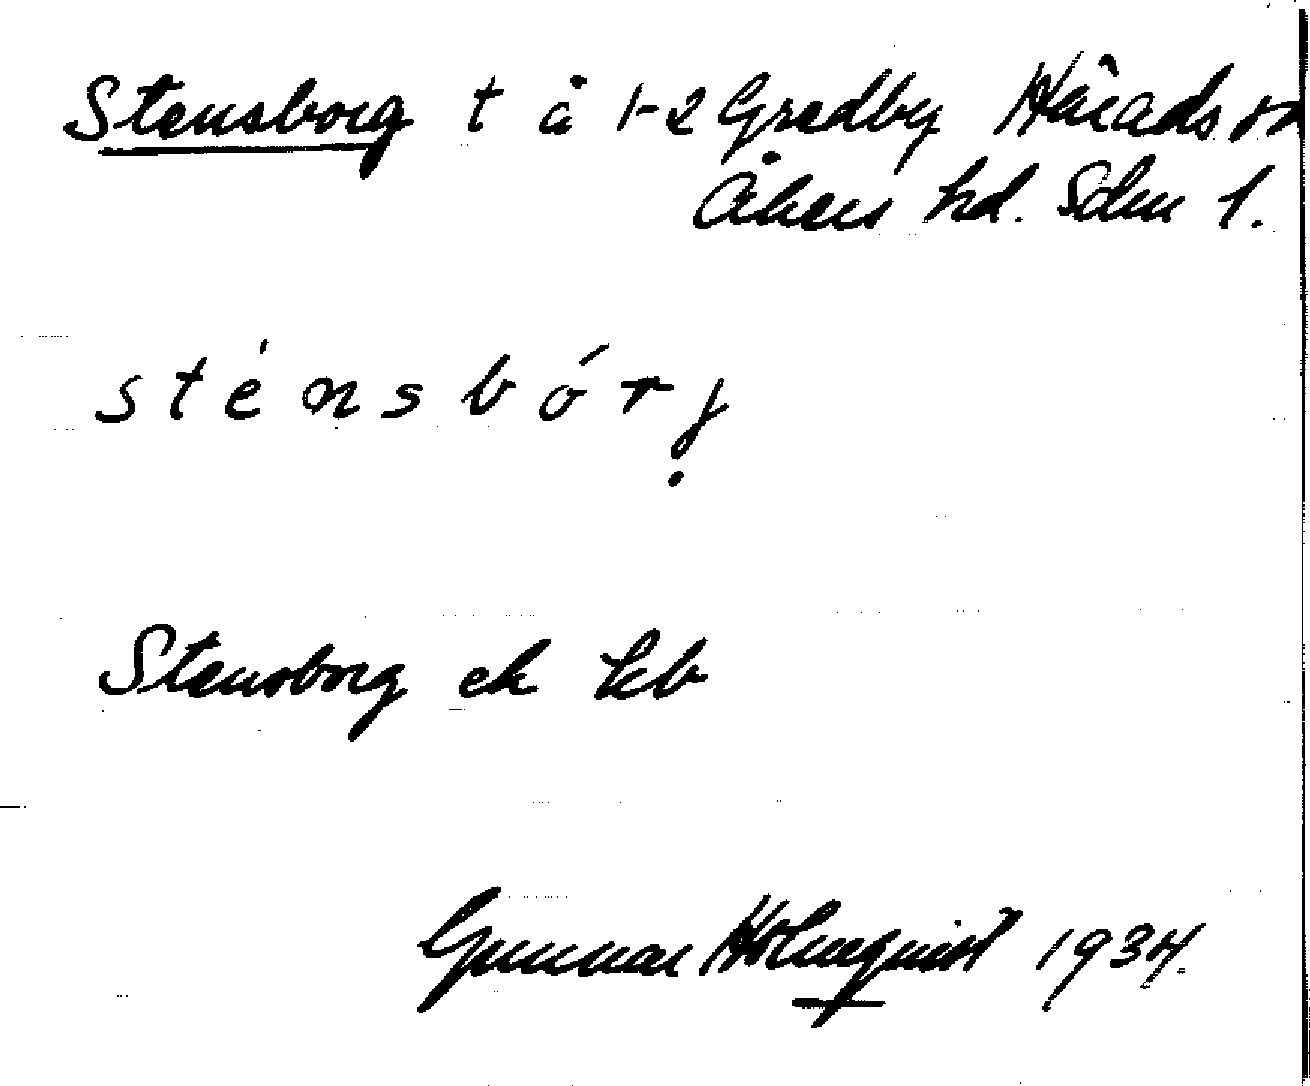 Stensborg t å 1-2 Gredby Härads sn
Åkers hd. Sdm l.
sténsbórj
Stensborg ek kb
Gunnar Holmquist 1934.